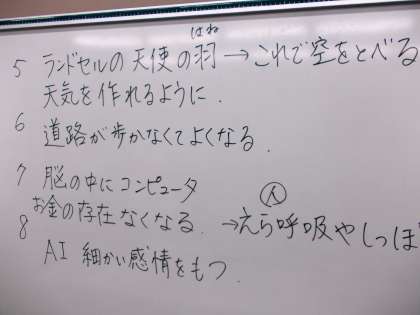 はね
5 ランドセルの天使の羽→これで空をとべる
天気を作れるように.
6 道路が歩かなくてよくなる.
7 脳の中にコンピュータ
人
お金の存在なくなる. →えら呼吸やしっぽ
8 AI 細かい感情をもつ.